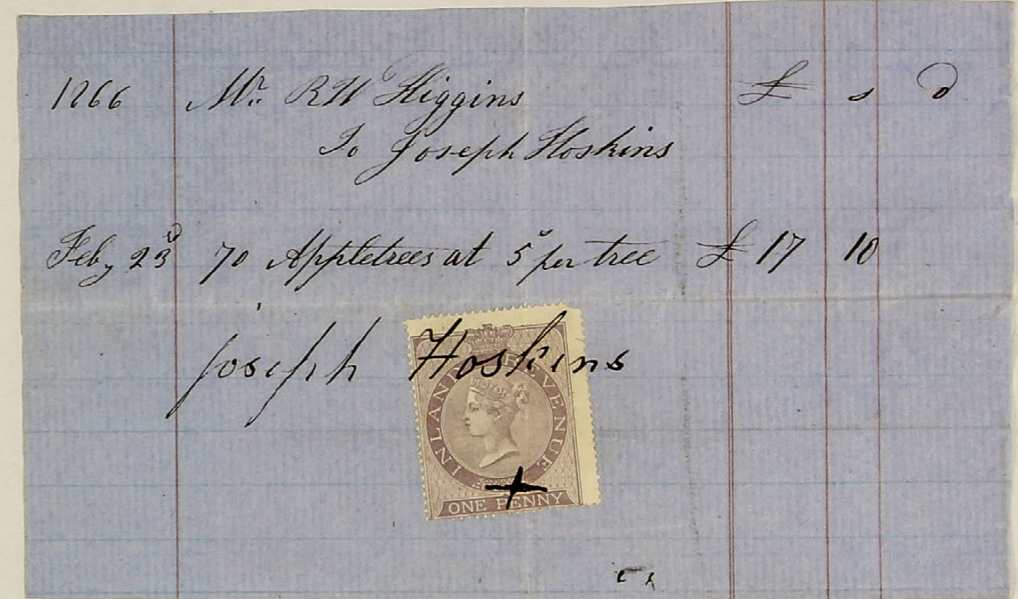 1866 Mr. R W Higgins £ s d
To Joseph Hoskins
Feby 23d 70 Appletrees at 5s per tree £ 17 10
Joseph Hoskins
INLAND REVENUE
ONE PENNY